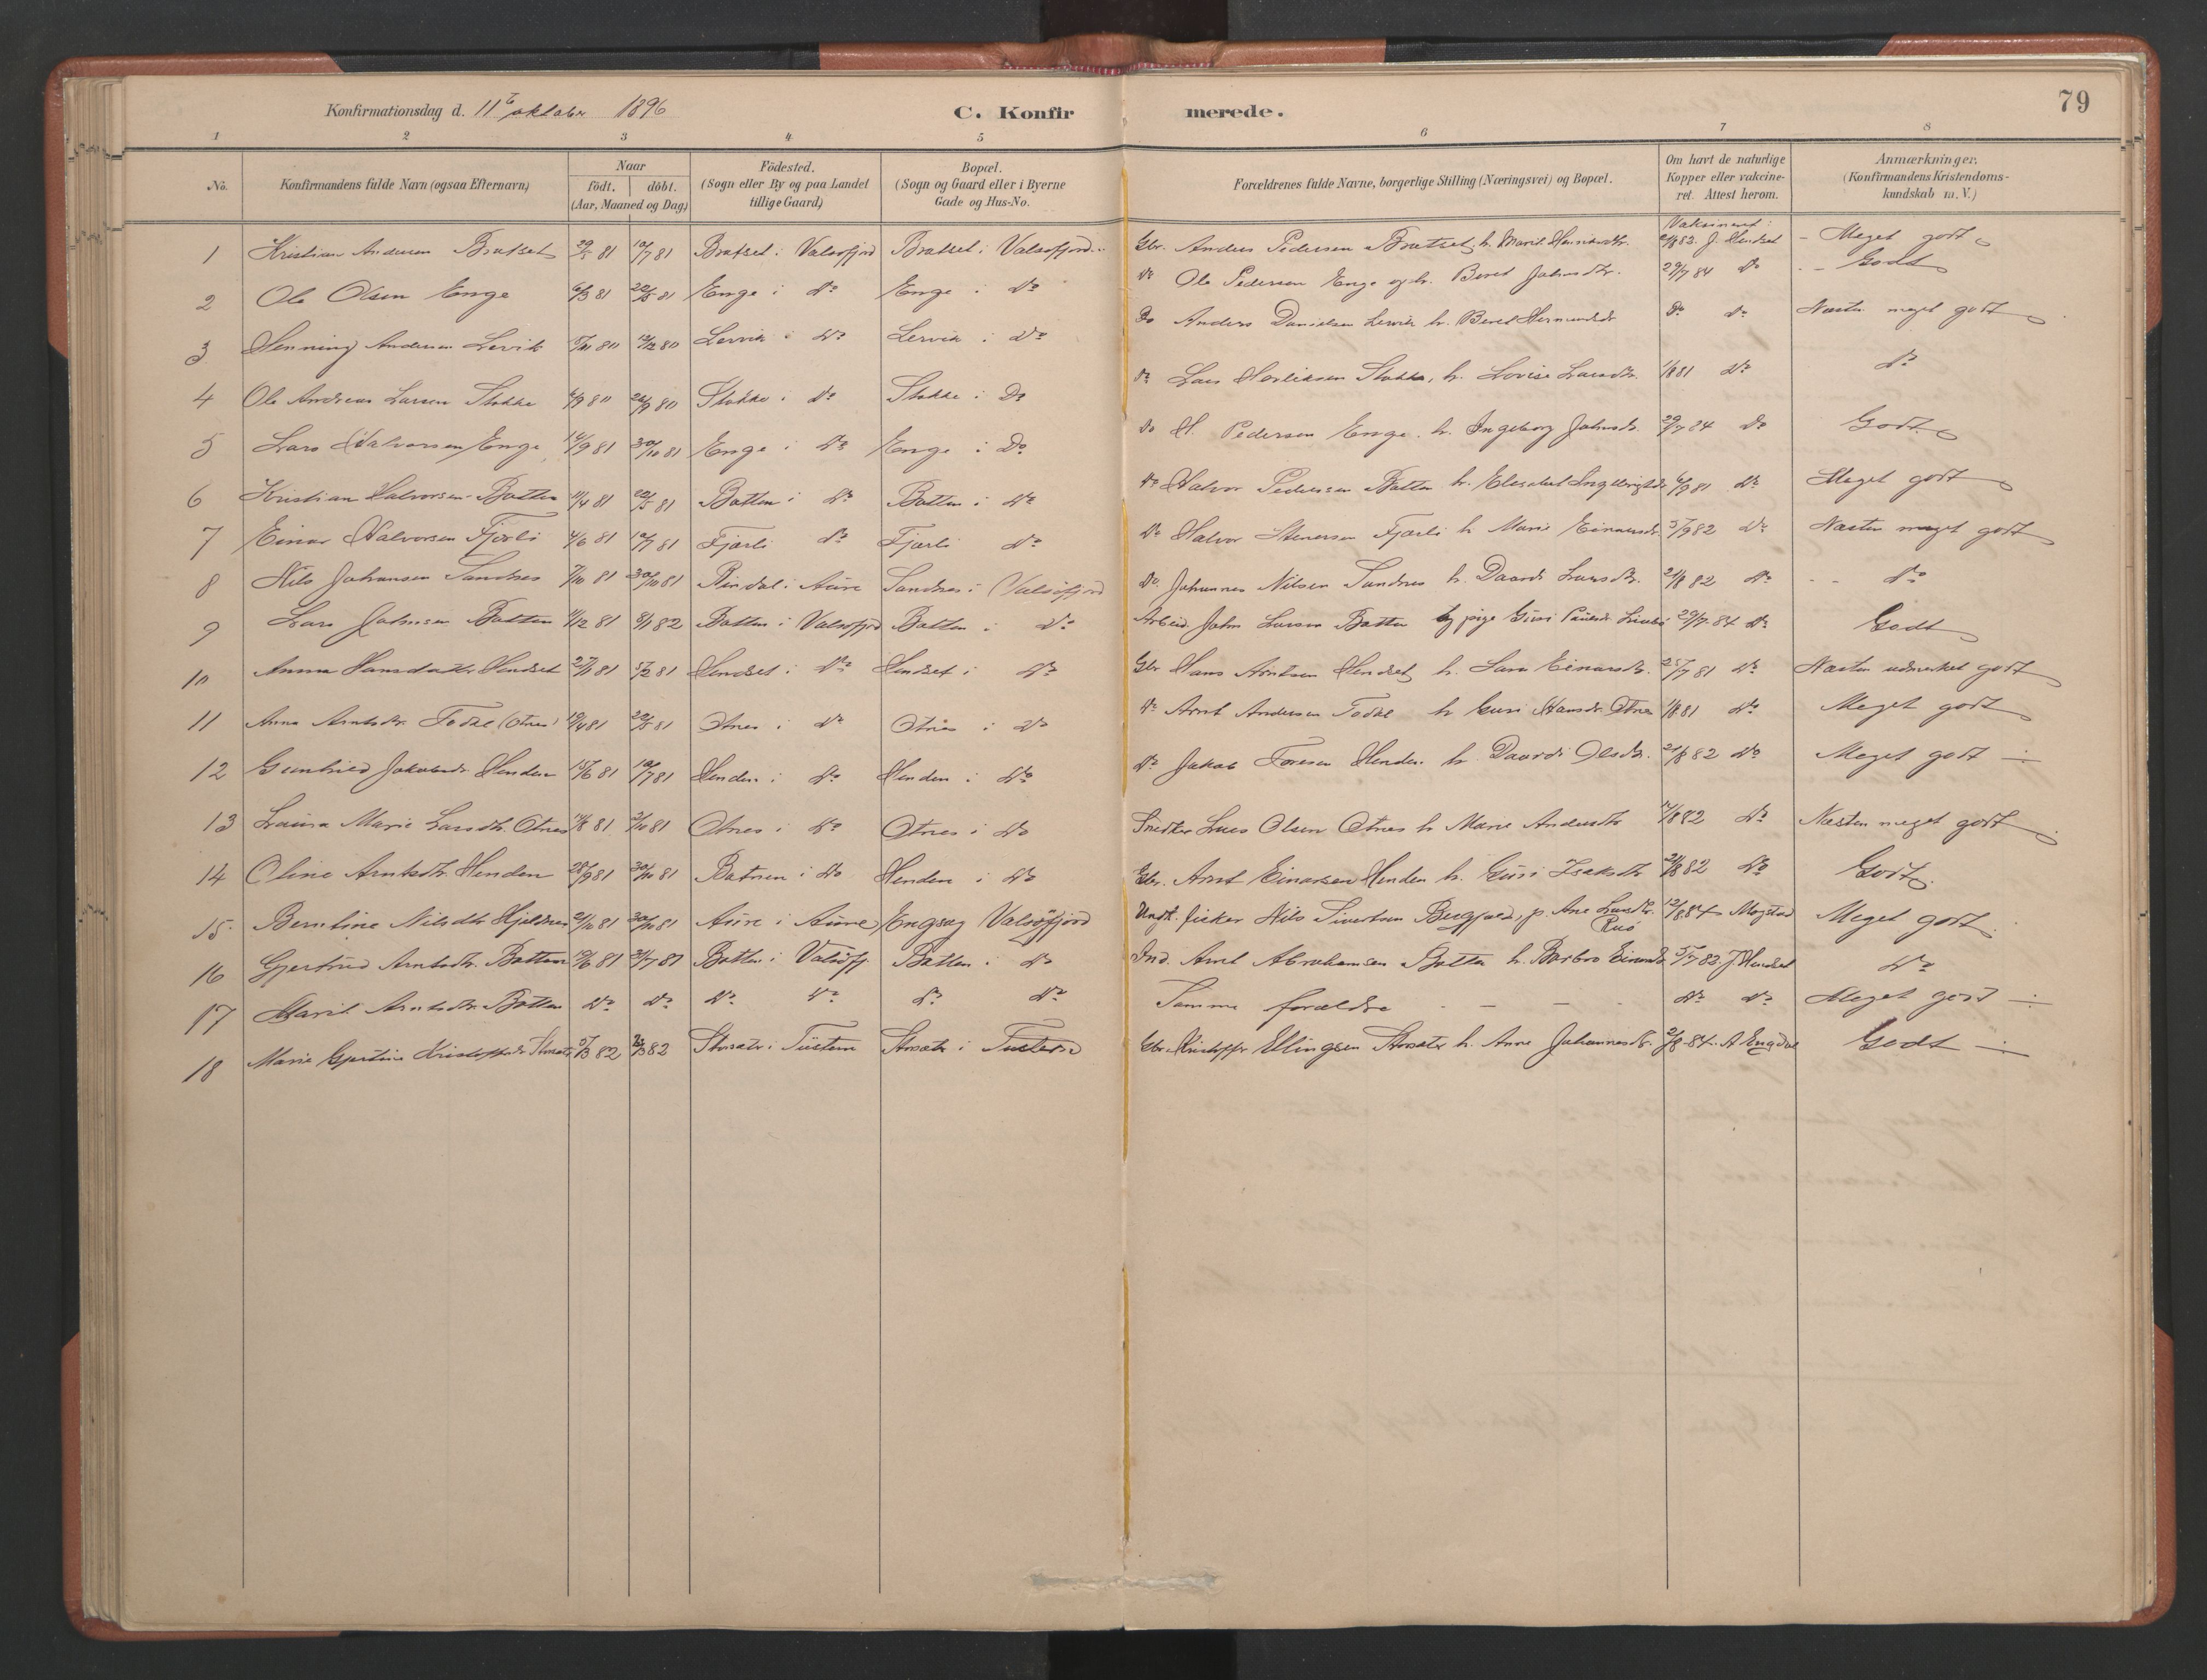 79
Konfirmationsdag d. 11te oktober 1896 C. Konfir merede.
1 2 3 4 5 6 7 8
No. Konfirmandens fulde Navn (ogsaa Efternavn) Naar födt. döbt. (Aar, Maaned og Dag) Födested. (Sogn eller By og paa Landet tillige Gaard) Bopæl. (Sogn og Gaard eller i Byerne Gade og Hus-No. Forældrenes fulde Navne, borgerlige Stilling (Næringsvei) og Bopæl. Om havt de naturlige Kopper eller vakcineret. Attest herom. Anmærkninger. (Konfirmandens Kristendomskundskab m. V.)
1 Kristian Andersen Bratset 29/5 81 10/7 81 Bratset i Valsøfjord Bratset i Valsøfjord Gbr. Anders Pedersen Bratset, h. Marit Vaksineret 21/8 82. J. Hendset Meget godt
2 Ole Olsen Enge 6/3 81 22/5 81 Enge i do Enge i do do Ole Pedersen Enge og h. Beret Johnsdtr. 29/7 84 do Godt
3 Henning Andersen Lervik 80 80 Lervik i do Lervik i do Do Anders Danielsen Lervik h. Beret do do Næsten meget godt
4 Ole Andreas Larsen Stokke 6/9 80 26/9 80 Stokke i do Stokke i Do do Lars Stokke, h. Lovise Larsdtr. 1/8 81 do do
5 Lars Halvorsen Enge 14/9 81 30/10 81 Enge i do Enge i Do do H. Pedersen Enge. h. Ingeborg Johnsdr. 29/7 84 do Godt
6 Kristian Halvorsen Botten 11/4 81 22/5 81 Botten i do Botten i do do Halvor Pedersen Botten h. 6/9 81 do Meget godt
7 Einar Halvorsen Fjærli 4/6 81 10/7 81 Fjærli do Fjærli do do Halvor Stenersen Fjærli h. Marit Einarsdr. 5/9 82 do Næsten meget godt
8 Nils Johansen Sandnes 7/10 81 30/10 81 Rindal i Aure Sandnes i Valsøfjord Do. Johannes Nilsen Sandnes h. Daardi Larsdtr. 21/8 82 do do
9 Lars Johnsen Botten 11/12 81 8/1 82 Botten i Valsøfjord Botten i do Arbeid. John Larsen Botten og pige Guri 29/7 84 do Godt
10 Anna Hansdatter Hendset 81 81 Hendset i do Hendset i do Gbr Hans Arntsen Hendset h. Sara Einarsdr. 25/7 81 do Næsten udmerket godt
11 Anna Arntsdtr. Todal (Otnes) 19/4 81 22/5 81 Otnes i do Otnes i do do Arnt Andersen Todal h Guri Hansdr. Otnes 1/8 81 do Meget godt
12 Gunhild Jakobsdr Henden 15/6 81 10/7 81 Henden i do Henden i do do Jakob Toresen Henden h. Daardi Olsdtr. 21/8 82 do Meget godt
13 Laura Marie Larsdtr. Otnes 14/8 81 2/10 81 Otnes i do Otnes i do Snedker Lars Olsen Otnes h Marie Andersdtr 82 do Næsten meget godt
14 Oline Arntsdtr. Henden 28/9 81 30/10 81 Botnen i do Henden i do Gbr. Arnt Einarsen Henden h. Guri Isaksdtr 21/8 82 do Godt
15 Berntine Nilsdtr Hjeldnes 2/10 81 30/10 81 Aure i Aure Engsag Valsøfjord Ungk. fisker Nils Sivertsen p. Ane Larsdtr. Ruø 12/8 84 Mogstad Meget godt
16 Gjertrud Arntsdtr. Botten 19/6 81 31/7 81 Botten i Valsøfj Botten i do Ind. Arnt Abrahamsen Botten h. Barbro Einarsdr. 5/7 83. J Hendset do
17 Marit Arntsdtr. Botten do do do do do do Samme forældre do do Meget godt
18 Marie Gjertine Kristoffersdr. Storsætr 5/3 82 82 Storsætr i Tustern Storsætr i Gbr. Kristoffer Ellingsen Storsætr h. Anne Johannesdtr. 2/8 84. A Engdal Godt